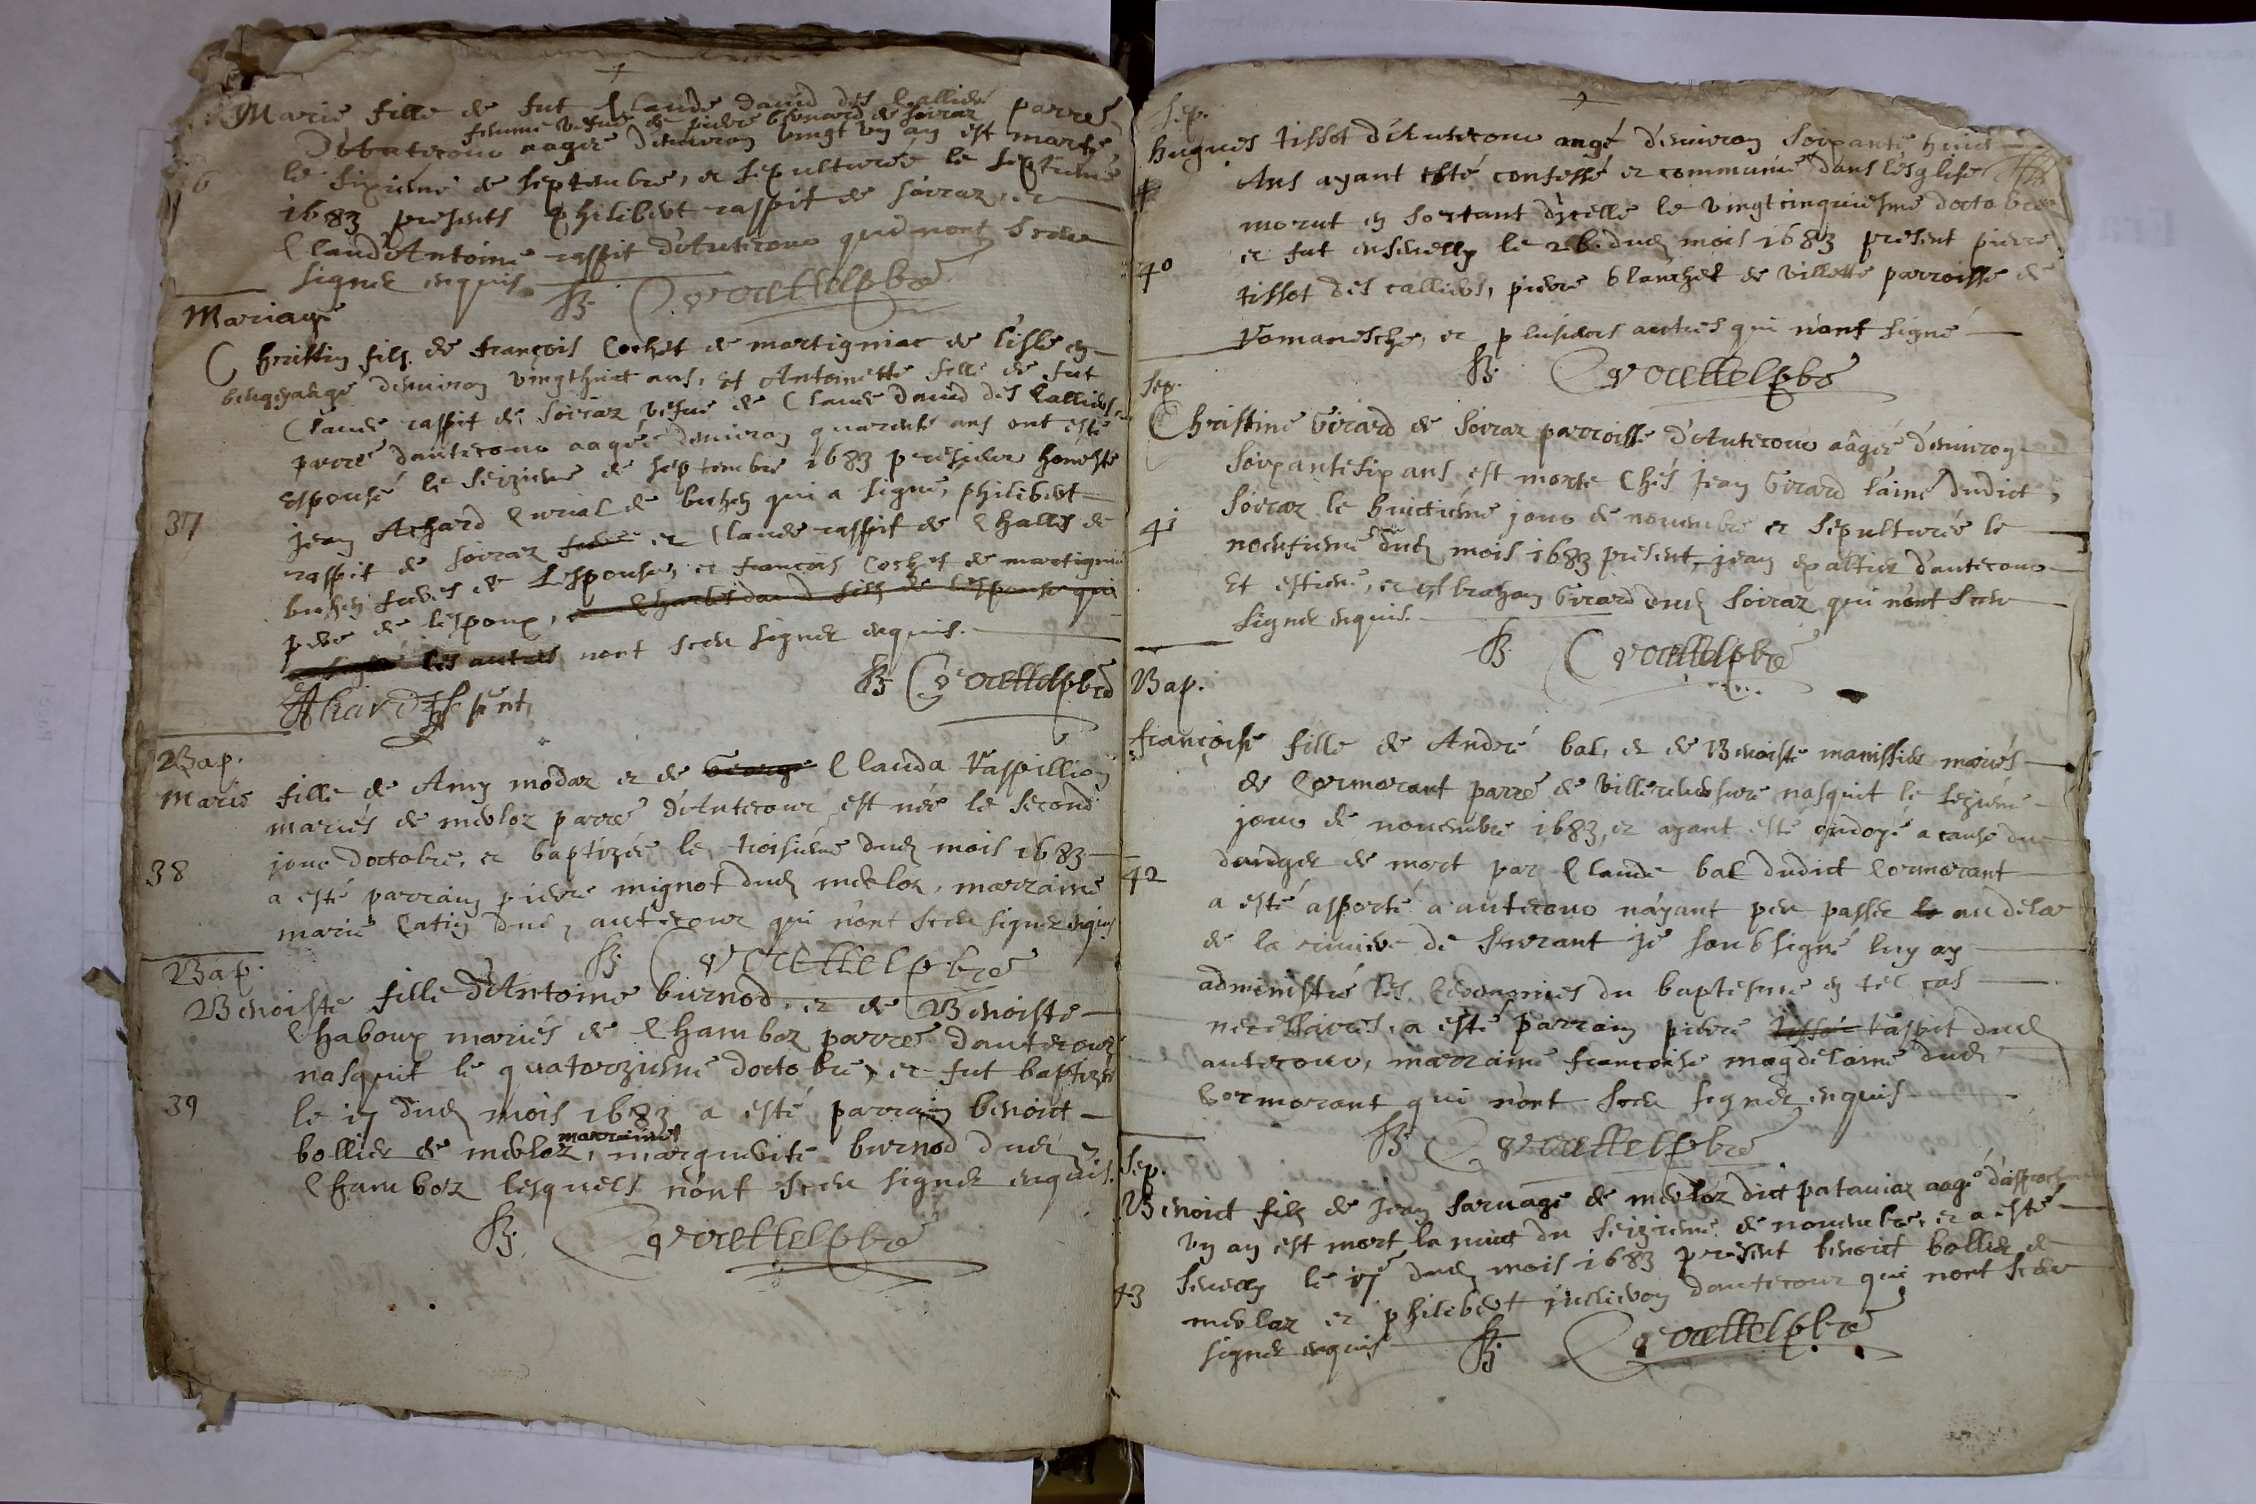 Marie fille de fut Claude Dauid des Calliers parr.e
femme vefue de pierre bernard de soiraz
D'Autecour aagee denuiron vingt vn an est morte
6
le sixieme de septembre, et sepulturée le septieme
1683 presents philibert raffit de soiraz, et
Claud'Antoine raffit d'Autecour qui n'ont sceu
signer enquis
Mariage
Christin fils de françois Cochet de martigniat de l'isle en
aagé denuiron vingthuict ans, et Antoinette fille de fut
Claude raffit de soiraz vefue de Claude Dauid des Calliers
parr.e dautecour aagée denuiron quarente ans ont esté
espousé le seizieme de septembre 1683 presider honeste
37
jean Achard Curial de qui a signé, philibert
raffit de soiraz et Claude raffit de Challes de
freres de l'espouse, et françois Cochet de martigniat
pere de l'espoux, et Charles dauid fils de l'espouse qui
les autres nont sceu signer enquis.
Achard present
Bap.
Marie fille de Amy modaz et de George Clauda Vaspillion
mariés de merloz parr.e d'Autecour est née le second
jour doctobre, et baptizée le troisieme dud. mois 1683
38
a esté parrain pierre mignot dud. merloz, marraine
marie Catin dud. autecour qui n'ont sceu signer enquis
Bap.
Benoiste fille d'Antoine burnod, et de Benoiste
Chaboux mariés de Chamboz parr.e dautecour
nasquit le quatorzieme doctobre, et fut baptizée
39
le 17 dud. mois 1683 a esté parrain benoict
marraine
bollier de merloz, marguerite burnod dud.
Chamboz lesquels n'ont sceu signer enquis.
Sep.
hugues tissot d'Autecour aagé d'enuiron soixante huict
Ans ayant esté confessé et communié dans l'esglise
morut en sortant d'icelle le vingtcinquiesme doctobre
et fut enseuelly le 26. dud. mois 1683 present pierre
40
tissot des calliers, pierre blanchet de villette parroisse de
Romanesche, et plusieurs autres qui n'ont signé
Sep.
Christine Girard de soiraz parroisse d'Autecour aâgée d'enuiron
soixantesix ans est morte Chés jean Girard l'ainé dudict
soiraz le huictieme jour de nouembre et sepulturée le
41
neufieme dud. mois 1683 present jean expallier d'autecour
et estiene, et Abraham Girard dud. soiraz qui n'ont sceu
signer enquis.
Bap.
françoise fille de André bal, et de Benoiste manissier mariés
de Cormorant parr.e de villereuersure nasquit le sezieme
jour de nouembre 1683, et ayant esté ondoyé a cause du
danger de mort par Claude bal dudict Cormorant
42
a esté asporté a autecour n'ayant peu passer le au dela
de la riuiere de surant je soubsigné luy ay
administré les ceremonies du baptesme en tel cas
necessaires, a esté parrain pierre tissot raffit dud.
autecour, marraine françoise magdelaine dud.
Cormorant qui n'ont sceu signer enquis
Sep.
Benoict fils de jean sauuage de merloz dict patauiaz aagé d'
vn an est mort la nuict du seizieme de nouembre, et a esté
seuelly le 17e dud. mois 1683 present benoict bollier de
43
merloz et philibert jullieron dautecour qui nont sceu
signer enquis